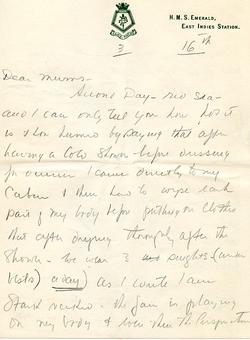 H.M.S. EMERALD,
EAST INDIES STATION.
3
16th
Dear Mums -
Second Day - Red Sea -
and I can only tell you how hot it
is & how humid by saying that after
having a cold shower before dressing
for dinner I came directly to my
Cabin & then have to wipe each
part of my body before putting on clothes
that after drying throughly after the
Shower - We wear 3
as I write I am
Stark
on my body & even then the perspiration